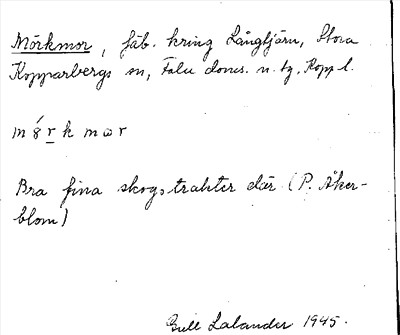 Mörkmor, fäb. kring Långtjärn, Stora
Kopparbergs sn, Falu doms. n. tg, Kopp l.
m ǿ r k m ω r
Bra fina skogstrakter där (P. Åker-
blom)
Lalander 1945.